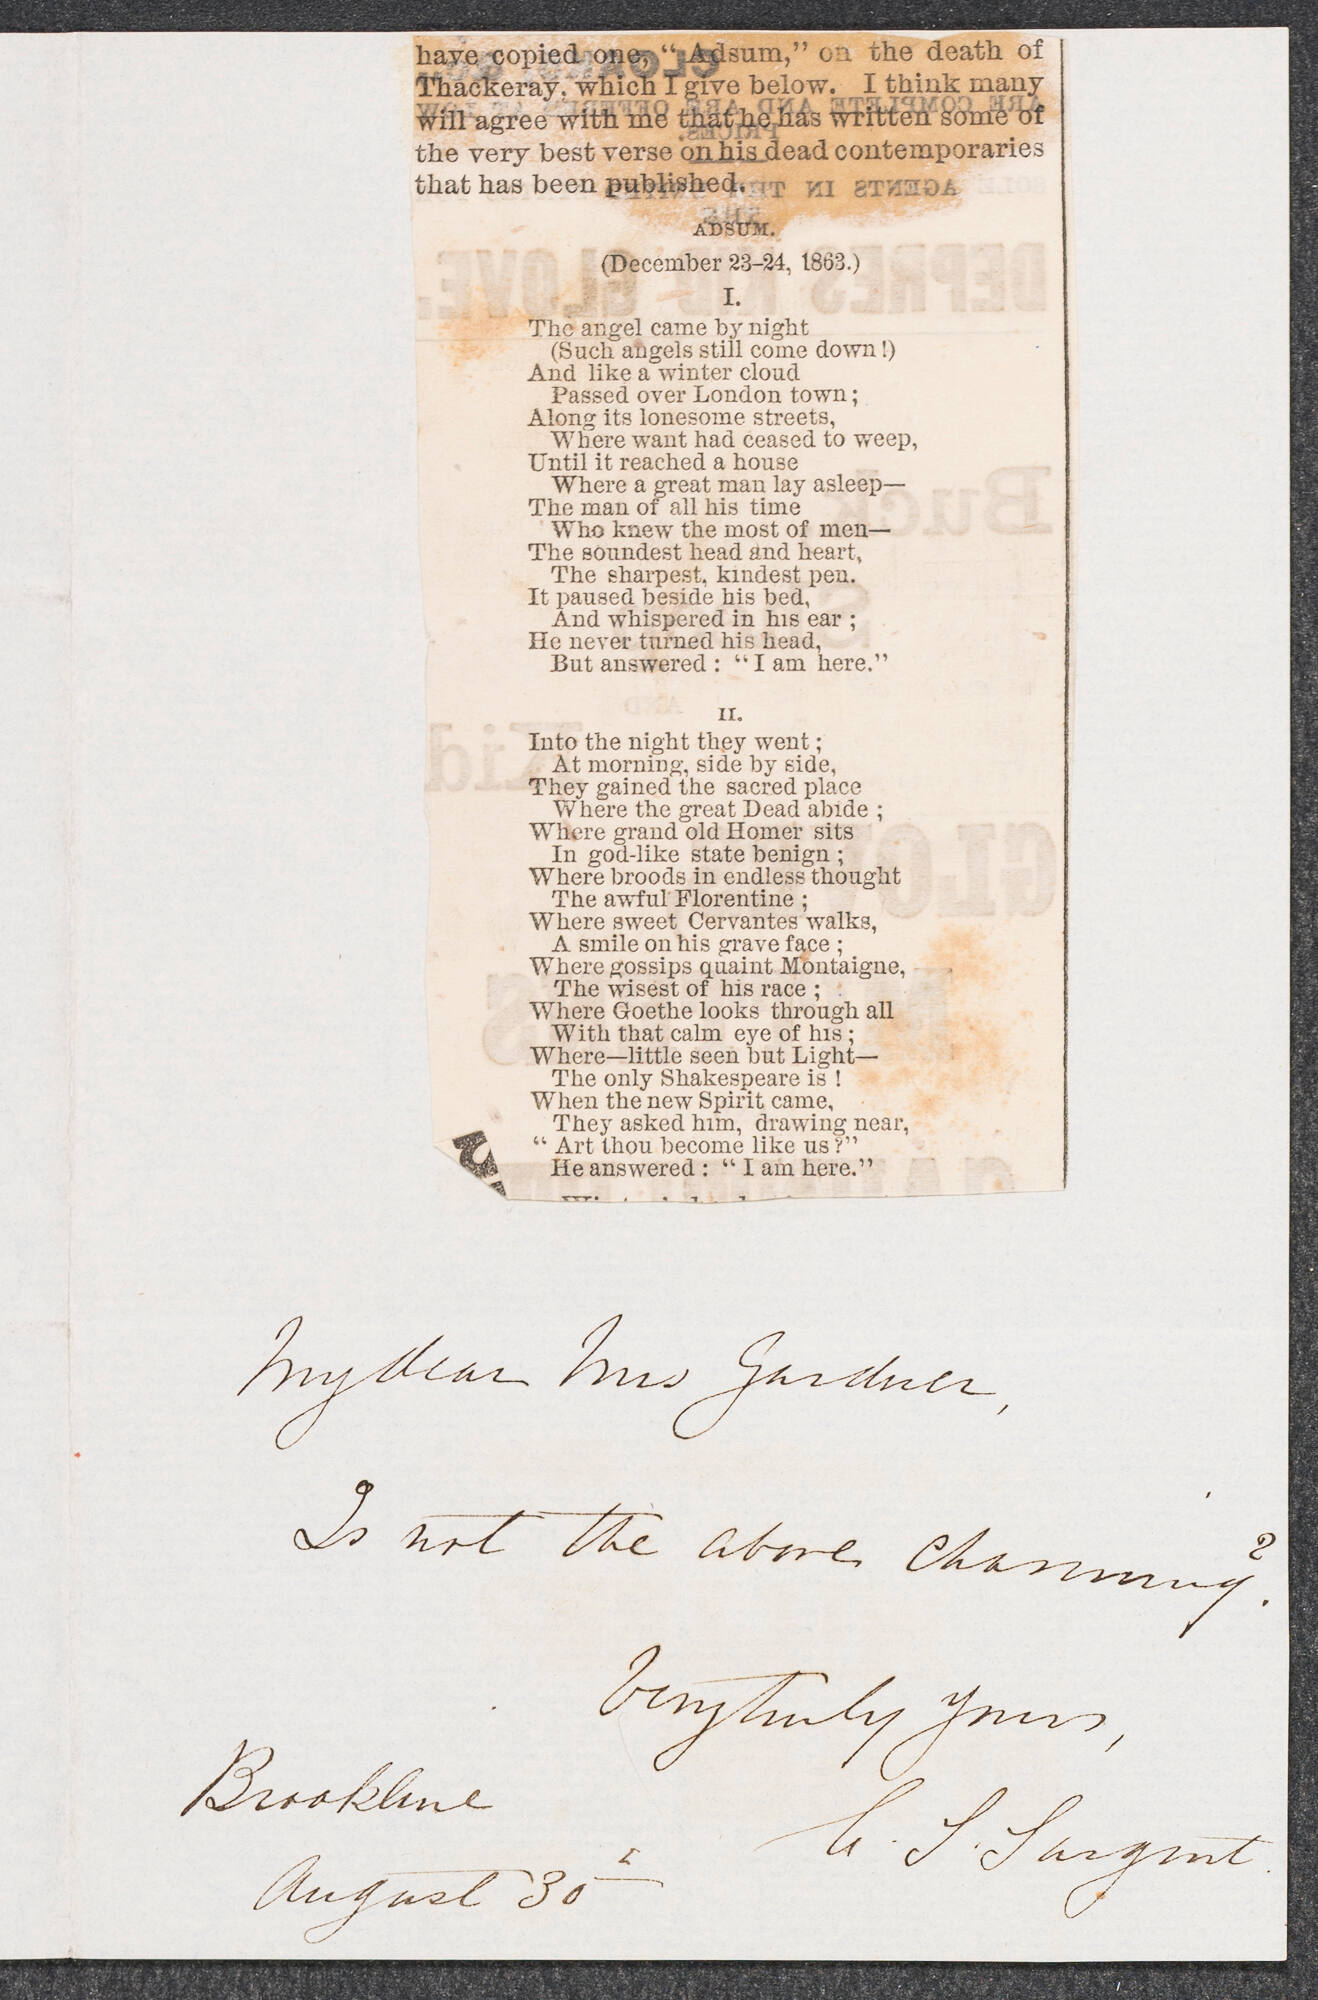 have copied one, "Adsum," on the death of
Thackeray, which I give below. I think many
will agree with me that he has written some of
the very best verse on his dead contemporaries
that has been published.
ADSUM.
(December 23–24, 1863.)
I.
The angel came by night
(Such angels still come down!)
And like a winter cloud
Passed over London town;
Along its lonesome streets,
Where want had ceased to weep,
Until it reached a house
Where a great man lay asleep—
The man of all his time
Who knew the most of men—
The soundest head and heart,
The sharpest, kindest pen.
It paused beside his bed,
And whispered in his ear;
He never turned his head,
But answered: "I am here."
II.
Into the night they went;
At morning, side by side,
They gained the sacred place
Where the great Dead abide;
Where grand old Homer sits
In god-like state benign;
Where broods in endless thought
The awful Florentine;
Where sweet Cervantes walks,
A smile on his grave face;
Where gossips quaint Montaigne,
The wisest of his race;
Where Goethe looks through all
With that calm eye of his;
Where—little seen but Light—
The only Shakespeare is!
When the new Spirit came,
They asked him, drawing near,
"Art thou become like us?"
He answered: "I am here."
My dear Mrs Gardner,
Is not the above charming?
Very truly yours,
C. S. Sargent.
Brookline
August 30